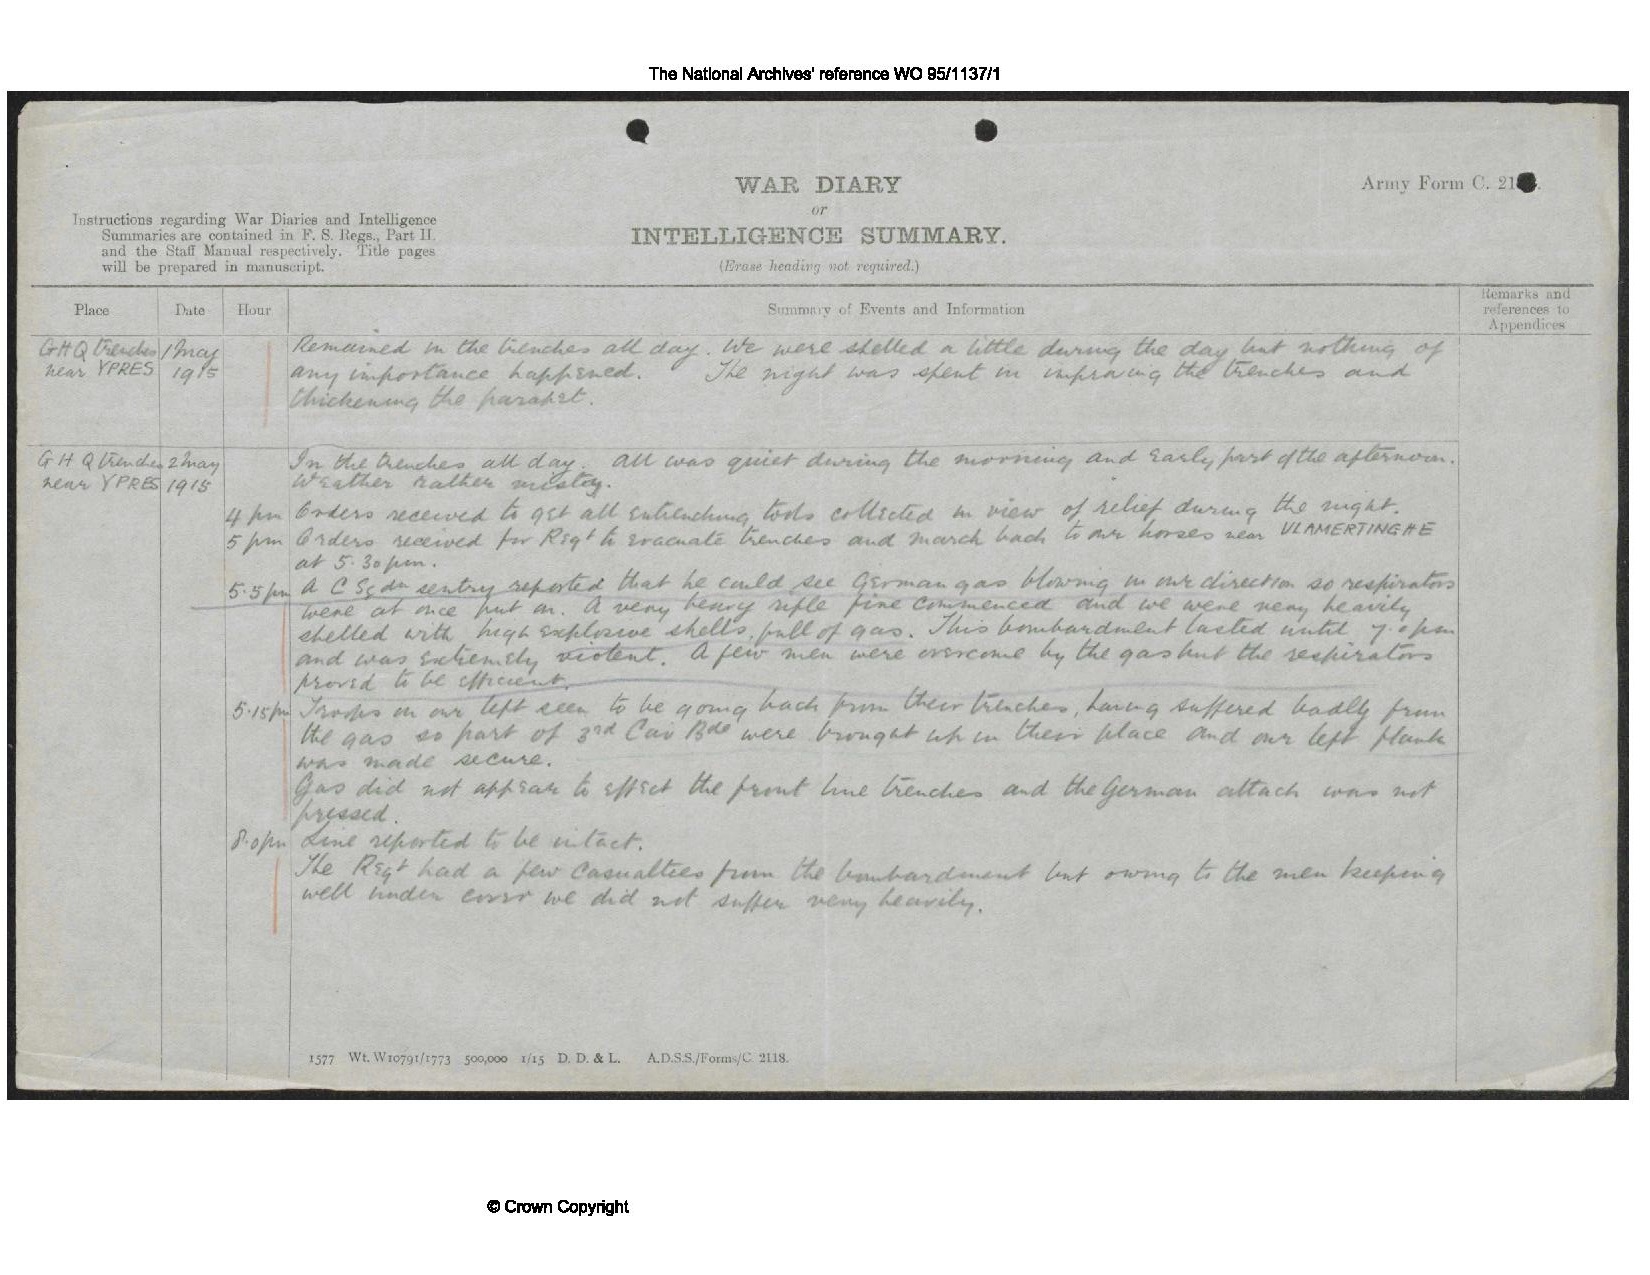 The National Archives' reference WO 95/1137/1
WAR DIARY
or
INTELLIGENCE SUMMARY.
(Erase heading not required.)
Army Form C. 21
Instructions regarding War Diaries and Intelligence
Summaries are contained in F. S. Regs., Part II.
and the Staff Manual respectively. Title pages
will be prepared in manuscript.
Place Date Hour Summary of Events and Information Remarks and
references to
Appendices
GHQ trenches 1 May Remained in the trenches all day. We were shelled a little during the day but nothing of
near YPRES 1915 any importance happened. The night was spent in improving the trenches and
thickening the parapet.
GHQ trenches 2 May In the trenches all day. All was quiet during the morning and early part of the afternoon.
near YPRES 1915 Weather rather misty.
4 pm Orders received to get all entrenching tools collected in view of relief during the night.
5 pm Orders received for Regt to evacuate trenches and march back to our horses near VLAMERTINGHE
at 5.30 pm.
5.5 pm A C Sqdn sentry reported that he could see German gas blowing in our direction so respirators
were at once put on. A very heavy rifle fire commenced and we were very heavily
shelled with high explosive shells, full of gas. This bombardment lasted until 7.0 pm
and was extremely violent. A few men were overcome by the gas but the respirators
proved to be efficient.
5.15 pm Troops on our left seen to be going back from their trenches, having suffered badly from
the gas so part of 3rd Cav Bde were brought up in their place and our left flank
was made secure.
Gas did not appear to effect the front line trenches and the German attack was not
pressed.
8.0 pm Line reported to be intact.
The Regt had a few casualties from the bombardment but owing to the men keeping
well under cover we did not suffer very heavily.
1577 Wt. W10791/1773 500,000 1/15 D. D. & L. A.D.S.S./Forms/C. 2118.
© Crown Copyright